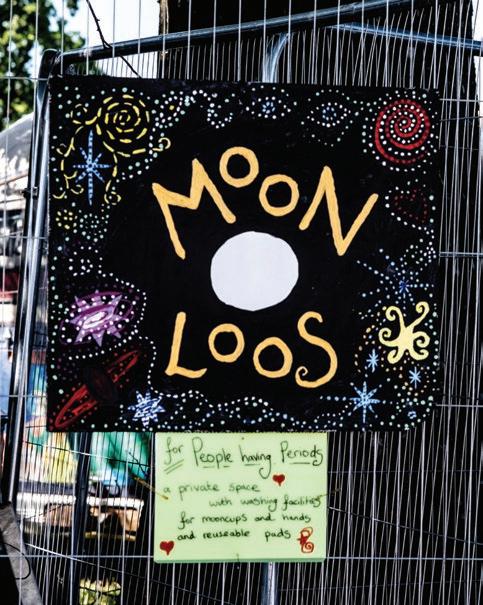 MOON
LOOS
for People having Periods
a private space
with washing facilities
for mooncups and hands
and reuseable pads